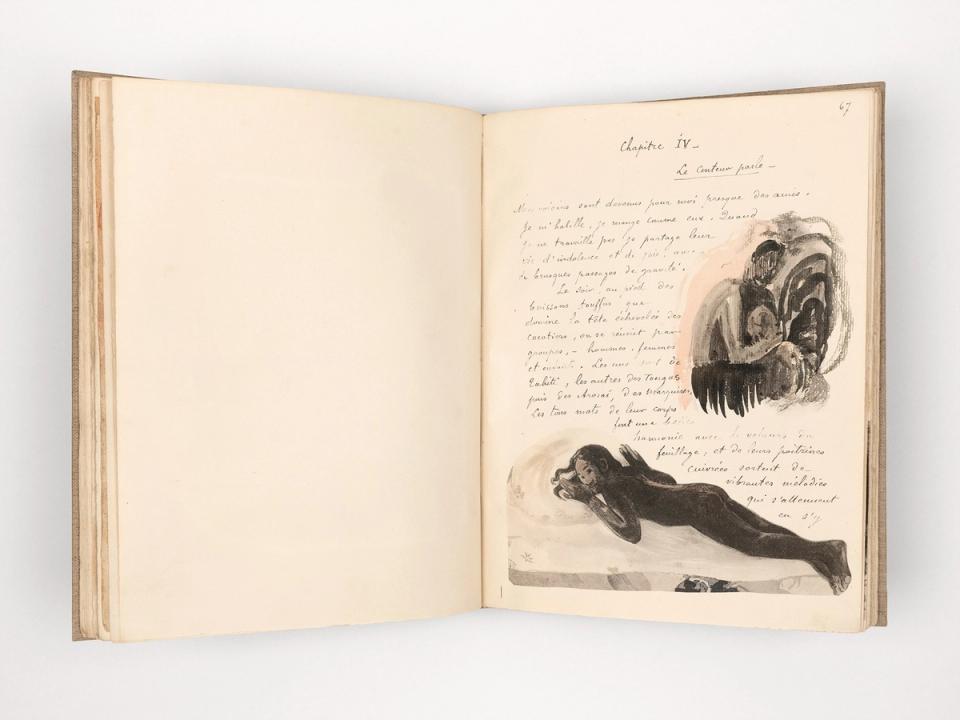 67
Chapitre IV_
Le Conteur parle _
Mes voisins sont devenus pour moi presque des amis.
Je m'habille, je mange comme eux. Quand
je ne travaille pas je partage leur
vie d'indolence et de joie, avec
de brusques passages de gravité.
Le soir, au pied des
buissons touffus que
domine la tête échevelée des
cocotiers, on se réunit par
groupes, - hommes, femmes
et enfants. Les uns sont de
Tahiti, les autres des Tongas,
puis des Arosaï, des Marquises.
Les tons mats de leur corps
font une belle
harmonie avec le velours du
feuillage, et de leurs poitrines
cuivrées sortent de
vibrantes mélodies
qui s'atténuent
en s'y